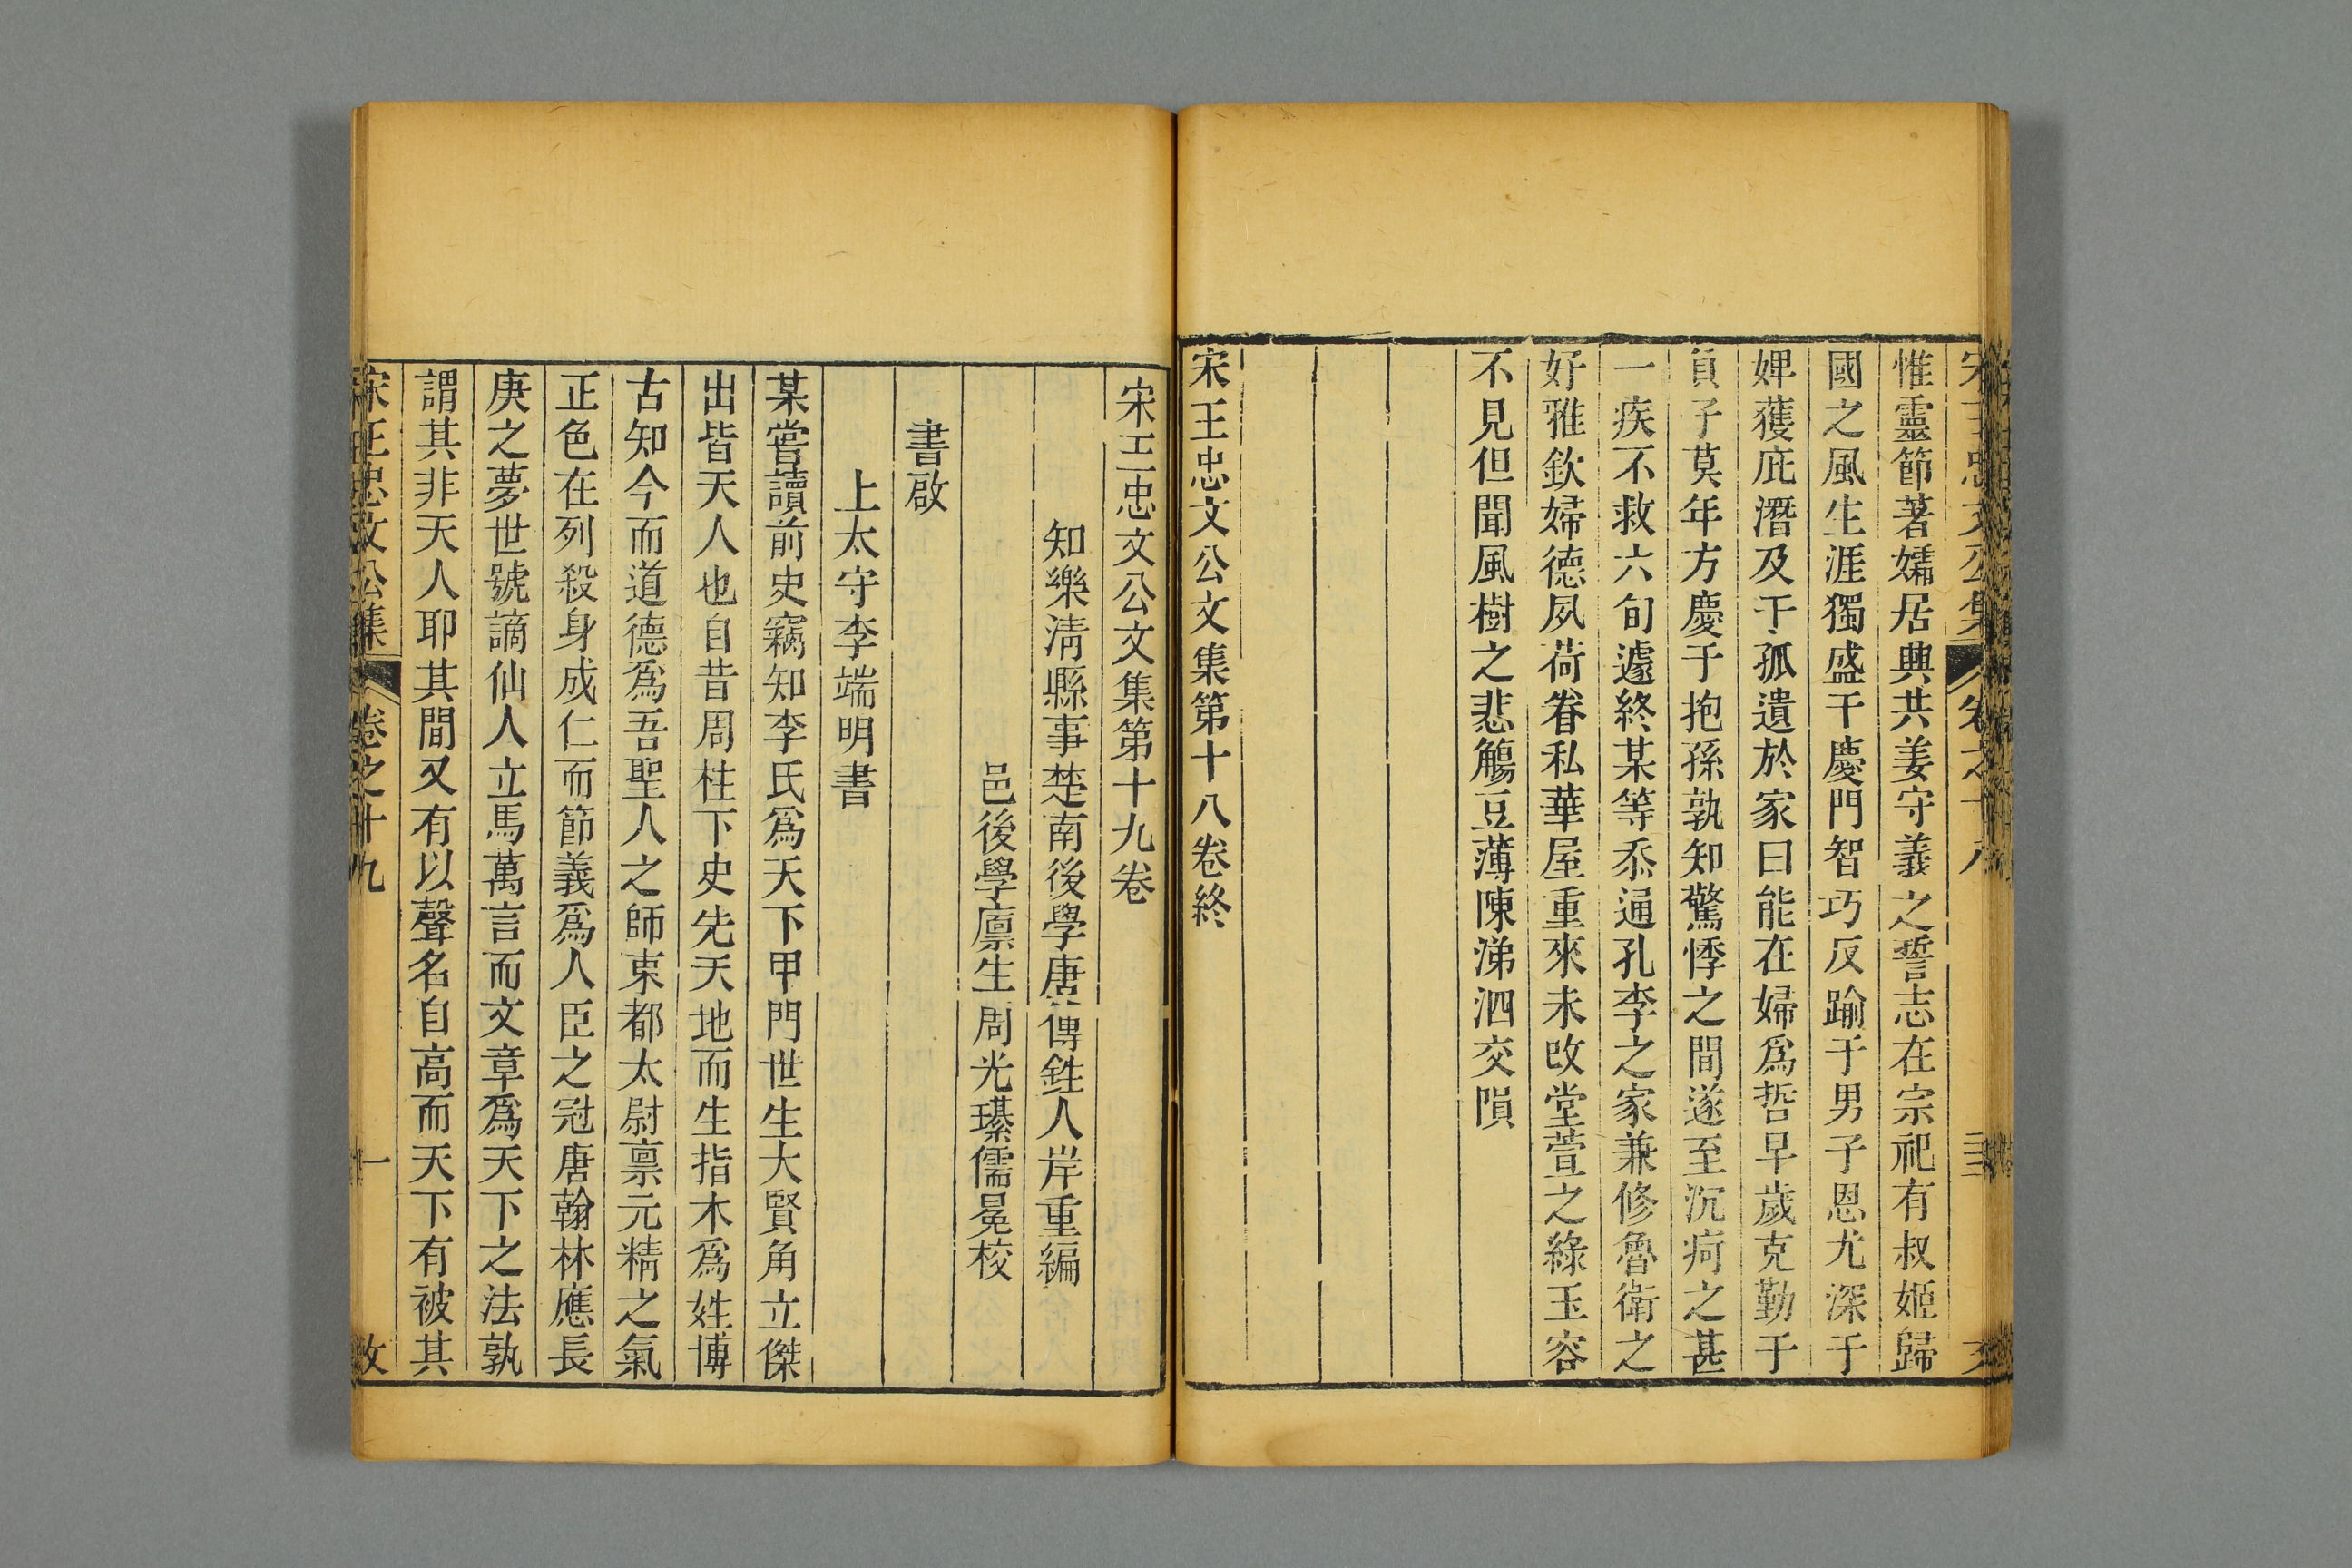 惟靈節著孀居興共姜守義之誓志在宗祀有叔姬歸
國之風生涯獨盛于慶門智巧反踰于男子恩尤深于
婢獲庇潛及于孤遺於家曰能在婦爲哲早歲克勤于
貟子莫年方慶于抱孫孰知驚悸之間遂至沉疴之甚
一疾不救六旬遽終某等忝通孔李之家兼修魯衛之
好雅欽婦德夙荷眷私華屋重來未改堂萱之綠玉容
不見但聞風樹之悲觴豆薄陳涕泗交隕
宋王忠文公文集第十八卷終
宋王忠文公文集第十九卷
知樂淸縣事楚南後學唐傳鉎人岸重編
邑後學廪生周光瑾儒冕校
書啟
上太守李端明書
某嘗讀前史竊知李氏爲天下甲門世生大賢角立傑
出皆天人也自昔周柱下史先天地而生指木爲姓博
古知今而道德爲吾聖人之師東都太尉禀元精之氣
正色在列殺身成仁而節義爲人臣之冠唐翰林應長
庚之夢世號謫仙人立馬萬言而文章爲天下之法孰
謂其非天人耶其間又有以聲名自高而天下有被其
宋王忠文公集 卷之十九 一